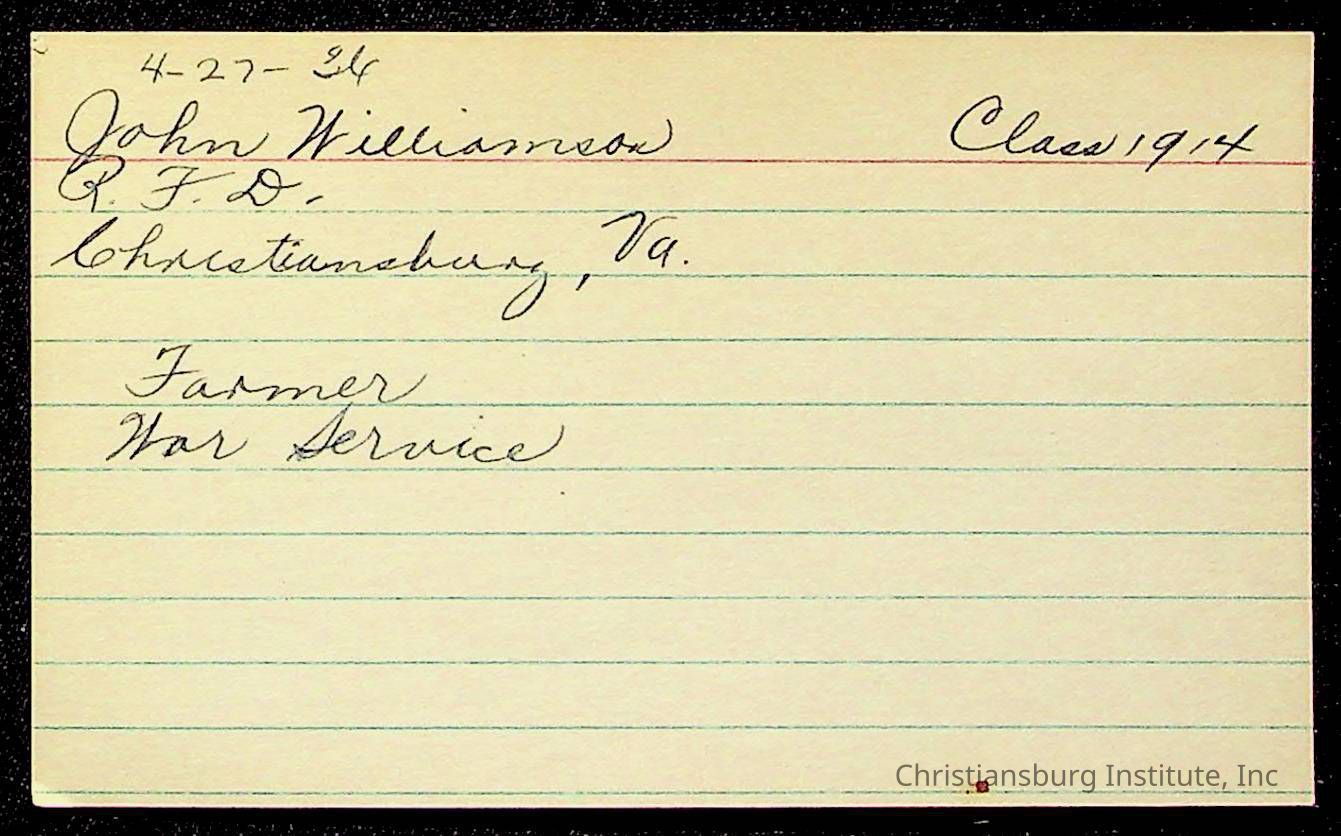 4-27-26
John Williamson Class 1914
R. F. D.
Christiansburg, Va.
Farmer
War Service
Christiansburg Institute, Inc